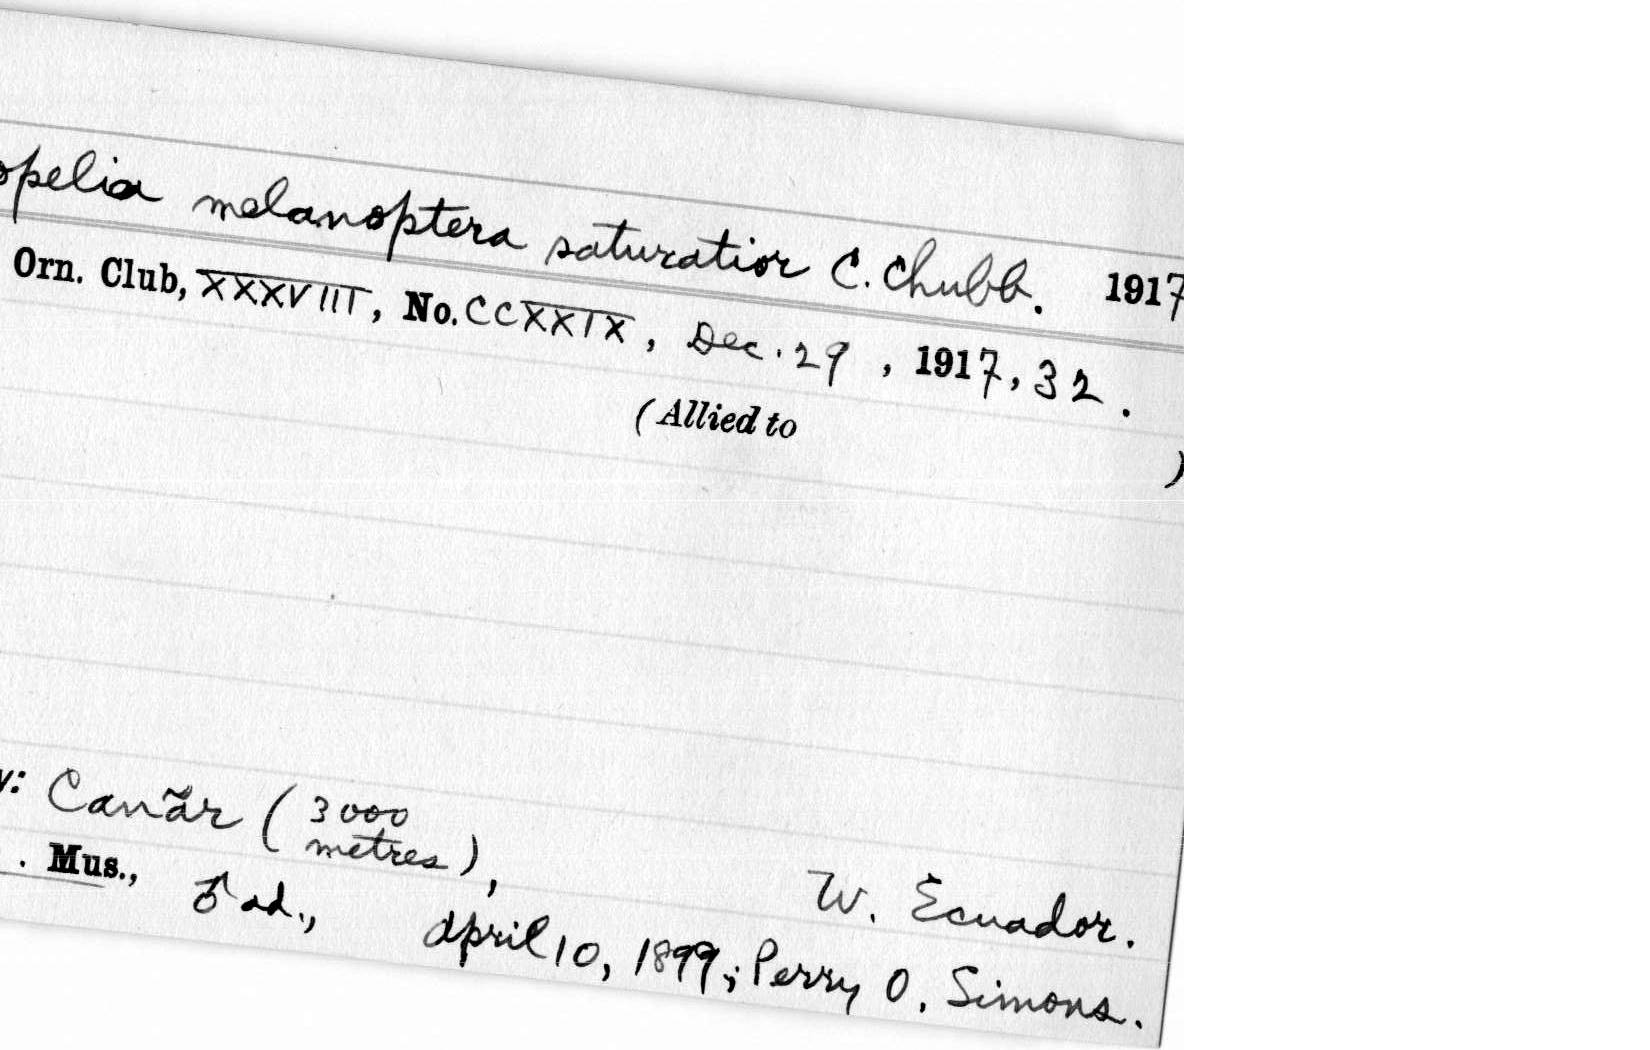 opelia melanoptera saturatior C. Chubb. 1917
Orn. Club, XXXVIII, No. CCXXIX, Dec. 29, 1917, 32.
(Allied to )
y: Canãr (3000 metres), W. Ecuador.
. Mus., ♂ ad., April 10, 1899; Perry O. Simons.